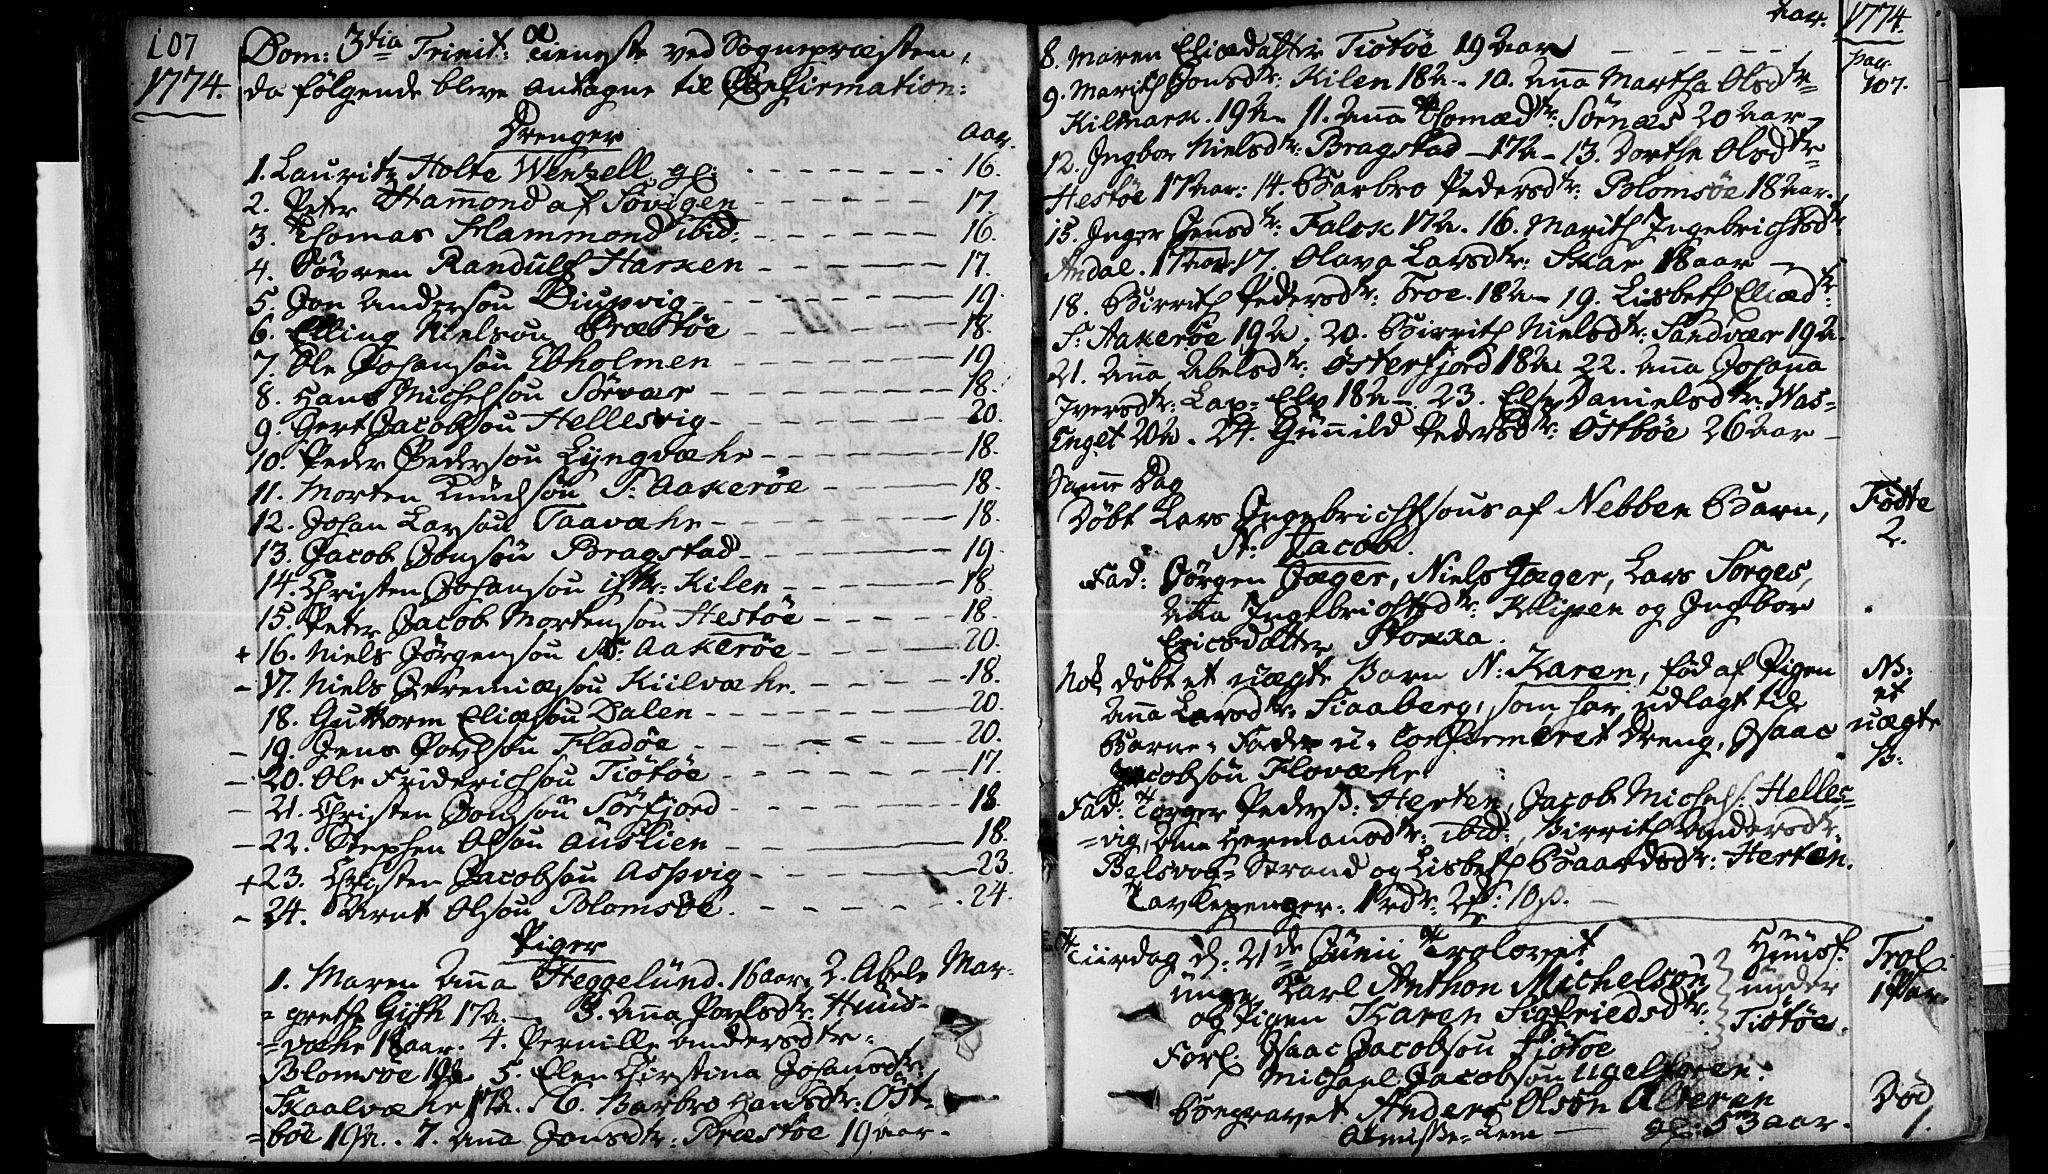 107
1774.
Dom: 3tia Trinit: Tieneste ved Sognepræsten,
da følgende bleve antagne til Confirmation:
Drenger
aar.
1. Lauritz Holte Wenzell gl: 16.
2. Peter Hammond af Søvigen 17.
3. Thomas Hammond ibid: 16.
4. Søvren Randulf Harken 17.
5. Jon Anderson Diupvig 19.
6. Elling Nielson Præstøe 18.
7. Ole Johanson Ebholmen 19.
8. Hans Michelson Sørvær 18.
9. Gert Jacobson Hellesvig 20.
10. Peder Pederson Lyngvæhr 18.
11. Morten Knudson S: Aakerøe 18.
12. Johan Larson Taavæhr 18.
13. Jacob Jonson Bragstad 19.
14. Christen Johanson Kilen 18.
15. Peter Jacob Mortenson Hestøe 18.
+ 16. Niels Jørgenson N: Aakerøe 20.
- 17. Niels Jeremiæson Kiilvæhr 18.
18. Guttorm Eliæson Dalen 20.
- 19. Jens Povelson Fladøe 20.
- 20. Ole Friderichson Tiøtøe 17.
- 21. Christen Jonson Sørfjord 18
- 22. Stephen Olson Auslien 18.
+ 23. Christen Jacobson Aspvig 23.
- 24. Arnt Olson Blomsøe 24.
Piger
1. Maren Anna Heggelund. 16 aar. 2. Abele Mar-
grethe Gisth 17a. 3. Anna Povelsdtr: Hund-
væhr 18 aar. 4. Pernille Andersdtr:
Blomsøe 19a 5. Elen Christina Johansdtr:
Skaalvæhr 17a. 6. Barbro Hansdtr: Øst-
bøe 19a. 7. Anna Jonsdtr: Præstøe 19 aar.
aar. 1774.
pag.
107.
8. Maren Eliædatter Tiøtøe 19 aar
9. Marith Jonsdtr: Kilen 18a 10. Anna Martha Olsdtr
Kilmark. 19a 11. Anna Thomædtr: Sørnæs 20 aar
12. Ingbor Nielsdtr: Bragstad 17a 13. Dorthe Olsdtr
Hestøe 17 aar: 14. Barbro Pedersdtr: Blomsøe 18 aar.
15. Inger Jensdtr: Falok 17a. 16. Marith Ingebrichtsdtr
Andal. 17 aar 17. Olava Larsdtr: Skar 18 aar
18. Birrith Pedersdtr: Troe. 18a 19. Lisbeth Eliædtr:
S: Aakerøe 19a. 20. Birrith Nielsdtr: Sandvær 19a
21. Anna Abelsdtr: Østerfjord 18a 22. Anna Johanna
Iversdtr: Lap-Elv 18a 23. Else Danielsdtr: Was-
Enget 20a. 24. Gunild Pedersdtr: Østbøe 26 aar
Samme Dag
Døbt Lars Ingebrichtsons af Nebben Barn,
N: Jacob.
Fødte
2.
Fad: Jørgen Jæger, Niels Jæger, Lars Forges,
Anna Ingebrichtsdtr: Klipen og Ingbor
Ericsdatter Stokka.
Nok døbt et uægte Barn N: Karen, fød af Pigen
Anna Larsdtr: Fiaaberg, som har udlagt til
Barne-Fader u-confirmeret Dreng, Isaac
Jacobson Flovæhr.
NB:
et
uægte
B:
Fad: Torger Peders: Herten, Jacob Michels: Helles-
vig, Ane Hermansdtr: ibid:, Birrith Andersdtr:
Belsvog-Strand og Lisbeth Baardsdtr: Herten.
Tavlepenger. 1 rdr: 2: 10 s.
Tiirdag d: 21de Junii Troloved
unge Karl Anthon Michelson
og Pigen Karen Sigfriedsdtr:
Huusf.
under
Tiøtøe.
Trol.
1 Par.
Forl: Isaac Jacobson Tiøtøe
Michael Jacobson Ugelforen.
Begravet Anders Olson Alteren
Almisse-Lem gl: 53 aar.
Død
1.